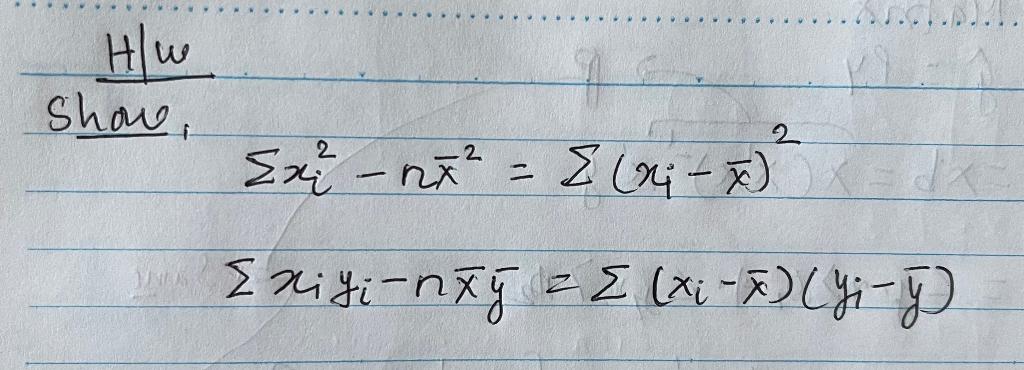 H/W
Show,
Σxᵢ² - nx̄² = Σ(xᵢ - x̄)²
Σxᵢyᵢ - nx̄ȳ = Σ(xᵢ - x̄)(yᵢ - ȳ)